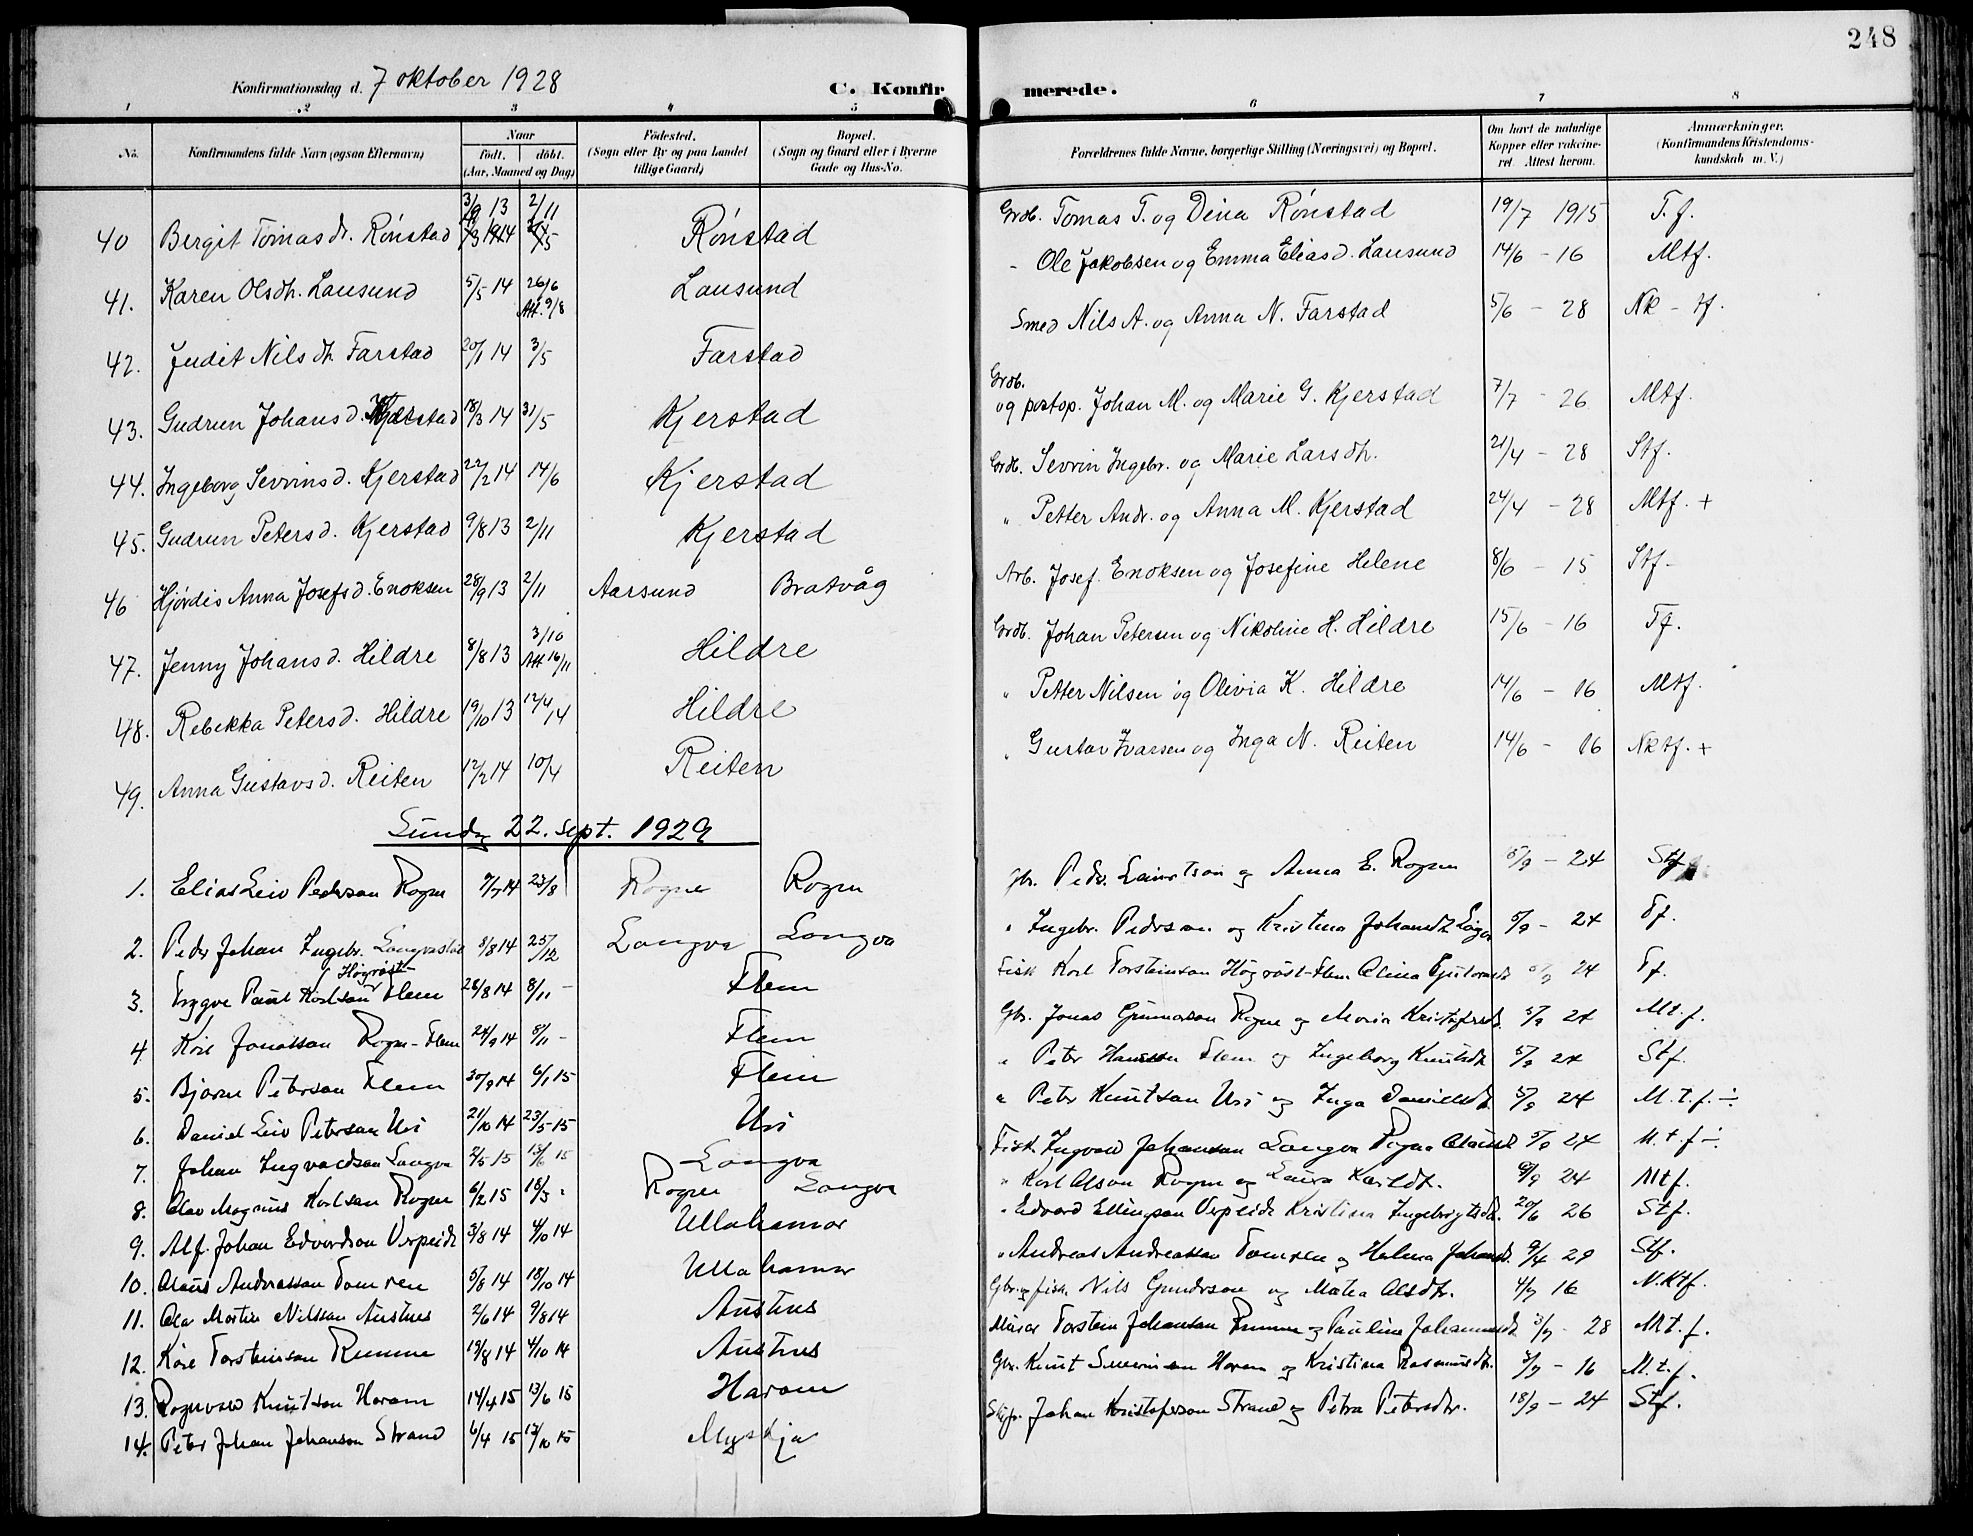 248
Konfirmationsdag d. 7 oktober 1928 C. Konfirmerede.
1 2 3 4 5 6 7 8
No. Konfirmandens fulde Navn (ogsaa Efternavn) Naar født. døbt. (Aar, Maaned og Dag) Fødested. (Sogn eller By og paa Landet tillige Gaard) Bopæl. (Sogn og Gaard eller i Byerne Gade og Hus-No. Forældrenes fulde Navne, borgerlige Stilling (Næringsvei) og Bopæl. Om havt de naturlige Kopper eller vakcineret. Attest herom. Anmærkninger. (Konfirmandens Kristendomskundskab m. V.)
40 Bergit Tomasdr. Rónstad 3/9 13 2/11 Rónstad Grdb. Tomas T. og Dina Rónstad 19/7 1915 T.f.
41. Karen Olsdh. Lausund 5/5 14 26/6 Att. 9/8 Lausund - Ole Jakobsen og Emma Eliasd. Lausund 14/6 - 16 Mtf.
42. Judit Nilsdh. Farstad 20/1 14 3/5 Farstad Smed Nils A. og Anna N. Farstad 5/6 - 28 Nk - tf.
43. Gudrun Johansd. Kjerstad 18/3 14 31/5 Kjerstad Grdb. og postop. Johan M. og Marie G. Kjerstad 7/7 - 26 Mtf.
44. Ingeborg Sevrinsd. Kjerstad 22/2 14 14/6 Kjerstad Grdb. Sevrin Ingebr. og Marie Larsdh. 21/4 - 28 Stf.
45. Gudrun Petersd. Kjerstad 9/8 13 2/11 Kjerstad " Petter Andr. og Anna M. Kjerstad 24/4 - 28 Mtf. +
46 Hjórdis Anna Josefsd. Enoksen 28/9 13 2/11 Aarsund Bratvåg Arb. Josef. Enoksen og Josefine Helene 8/6 - 15 Stf.
47. Jenny Johansd. Hildre 8/8 13 3/10 Att 16/11 Hildre Grdb. Johan Petersen og Nikoline H. Hildre 15/6 - 16 Tf.
48. Rebekka Petersd. Hildre 19/10 13 12/4 14 Hildre " Petter Nilsen og Olivia K. Hildre 14/6 - 16 Mtf.
49. Anna Gustavsd. Reiten 12/2 14 10/4 Reiten " Gustav Ivarsen og Inga N. Reiten 14/6 - 16 Nktf. +
Sundg 22. sept. 1929
1. Elias Leiv Pederson Rogne 9/7 14 23/8 Rogne Rogne Gbr. Peder og Anna E. Rogne 5/9 - 24 Stf
2. Peder Johan Ingebr. 8/8 14 25/12 Longva Longva " Ingebr. Pederson og Kristina 5/9 - 24 Tf.
3. Trygve Paul Karlson Högröst- Flem 28/8 14 8/11 - Flem Fisk Karl Torsteinson Högröst-Flem Olina 24 Tf.
4. Kåre Jonasson Rogne-Flem 24/9 14 8/11 - Flem Gbr. Jonas Gunnarson Rogne og Maria 5/9 24 Mt.f.
5. Bjarne Peterson Flem 30/9 14 6/1 15 Flem " Peter Hansson Flem og Ingeborg Knutsdt. 5/9 24 Stf.
6. Daniel Leiv Peterson Uri 21/10 14 23/5 15 Uri " Peter Knutson Uri og Inga Danielsdt. 5/9 24 M.t.f. ÷
7. Johan Ingvaldson Longva 2/5 15 13/6 15 Longva Fisk. Ingvald Johanson Longva 5/9 24 M.t.f ÷
8. Olav Magnus Karlson Rogne 6/2 15 18/5 " Rogne Longva " Karl Olson Rogne og Laura Karlsdt. 9/9 24 Mtf.
9. Alf. Johan Edvardson Urpeide 3/8 14 4/10 14 Ullahamar " Edvard Ellingson Urpeide Kristina Ingebrigtsdt. 20/6 26 Stf.
10. Olaus Andreasson Tomren 5/8 14 18/10 14 Ullahamar " Andreas Andreasson Tomren og Halma 9/4 29 Stf.
11. Ola Martin Nilsson Austnes 2/6 14 9/8 14 Austnes Gbr. og fisk. Nils Gunderson og Matea Olsdtr. 4/7 16 N.Ktf.
12. Kåre Torsteinson Remme 13/8 14 4/10 14 Austnes Murar Torstein Johanson Remme og Pauline 3/7 - 28 Mt.f.
13. Rognvald Knutson Haram 14/4 15 13/6 15 Haram Gbr. Knut Severinson Haram og Kristina Rasmusdtr. 3/7 - 16 M.t.f.
14. Peter Johan Johanson Strand 6/4 15 17/10 15 Myskja Johan Kristoferson Strand og Petra Petersdtr. 18/9 - 24 Stf.